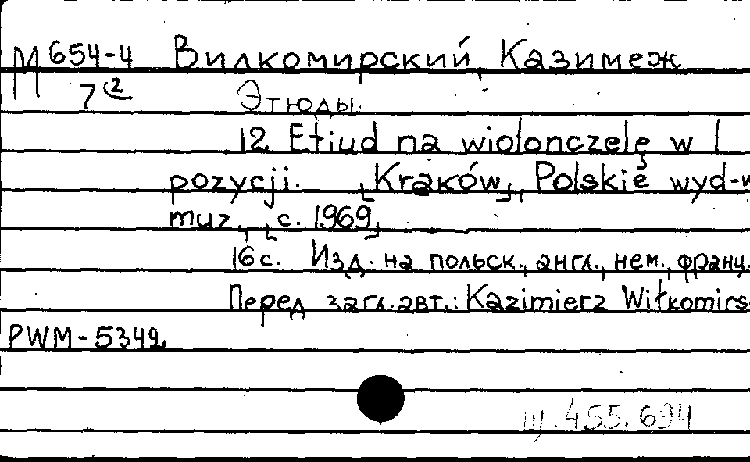 М 654-4 Вилкомирский, Казимеж
7② Этюды.
12 Etiud na wiolonczelę w I
pozycji. [Kraków], Polskie wyd-w
muz., [c. 1969]
16 с. Изд. на польск., англ., нем., франц.
Перед загл. авт.: Kazimierz Wiłkomirs
PWM-5349
455.694